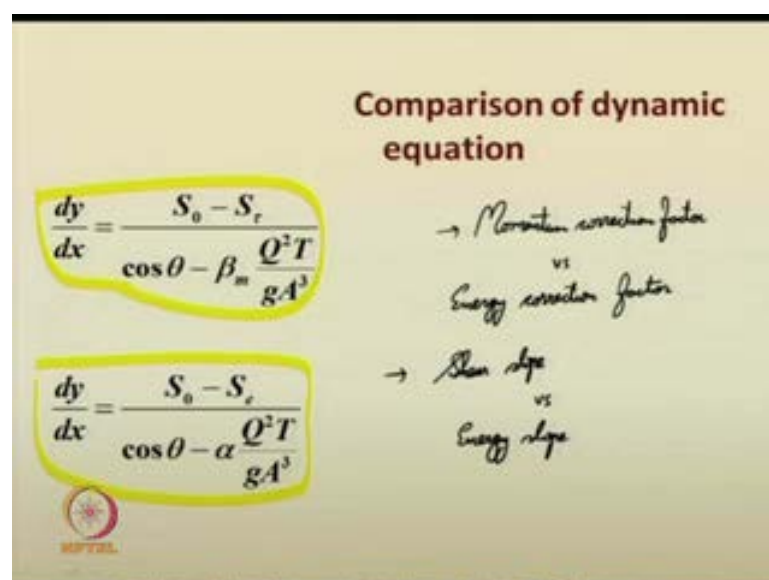 Comparison of dynamic
equation
dy/dx = (S₀ − Sᵣ) / (cos θ − βₘ Q²T/gA³)
→ Momentum correction factor
vs
Energy correction factor
dy/dx = (S₀ − Sₑ) / (cos θ − α Q²T/gA³)
→ Shear slope
vs
Energy slope
NPTEL